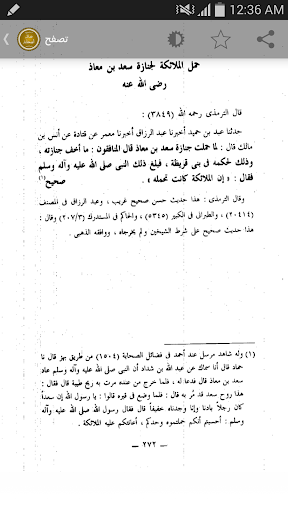 12:36 AM
تصفح
حمل الملائكة لجنازة سعد بن معاذ
رضى الله عنه
قال الترمذى رحمه الله (٣٨٤٩) :
حدثنا عبد بن حميد أخبرنا عبد الرزاق أخبرنا معمر عن قتادة عن أنس بن
مالك قال : لما حملت جنازة سعد بن معاذ قال المنافقون : ما أخف جنازته ،
وذلك لحكمه فى بنى قريظة ، فبلغ ذلك النبى صلى الله عليه وآله وسلم
فقال : « إن الملائكة كانت تحمله » . صحيح(١)
وقال الترمذى : هذا حديث حسن صحيح غريب ، وعبد الرزاق فى المصنف
(٢٠٤١٤) ، والطبرانى فى الكبير (٥٣٤٥) ، والحاكم فى المستدرك (٢٠٧/٣) وقال :
هذا حديث صحيح على شرط الشيخين ولم يخرجاه ، ووافقه الذهبى .
(١) وله شاهد مرسل عند أحمد فى فضائل الصحابة (١٥٠٤) من طريق بهز قال نا
حماد قال أنا سماك عن عبد الله بن شداد أن النبى صلى الله عليه وآله وسلم عاد
سعد بن معاذ قال فدعا له ، فلما خرج من عنده مرت به ريح طيبة قال فقال :
هذا روح سعد قد مُر به قال : فلما وضع فى قبره قالوا : يا رسول الله إن سعداً
كان رجلاً بادنا وإنا وجدناه خفيفاً قال فقال رسول الله صلى الله عليه وآله
وسلم : أحسبتم أنكم حملتموه وحدكم ، أعانتكم عليه الملائكة .
— ٢٧٢ —